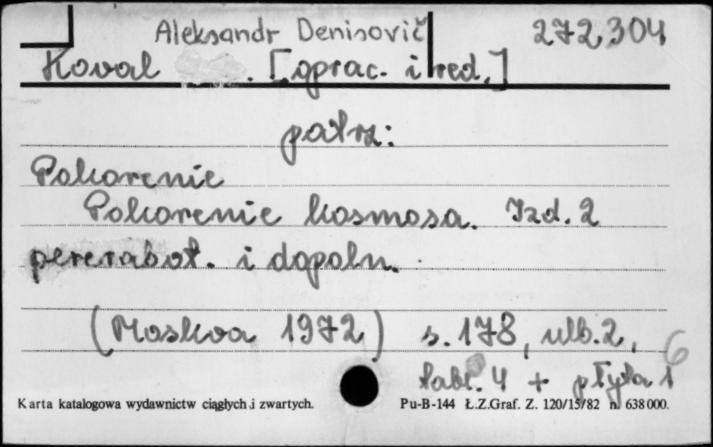 Aleksandr Denisovič 272,304
Koval . [oprac. i red.]
patrz:
Pokorenie
Pokorenie kosmosa. Izd. 2
pererabot. i dopoln.
(Moskva 1972) s. 178, nlb. 2, 6
tabl. 4 + płyta 1
Karta katalogowa wydawnictw ciągłych i zwartych. Pu-B-144 Ł.Z.Graf. Z. 120/15/82 n. 638000.